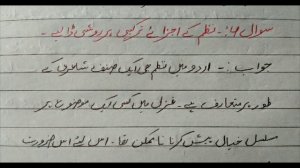 سوال ۶:۔ نظم کے اجزائے ترکیبی پر روشنی ڈالیے۔
جواب:۔ اردو میں نظم ایک صنف شاعری کے
طور پر متعارف ہے۔ غزل میں کسی ایک موضوع پر
مسلسل خیال پیش کرنا ناممکن تھا۔ اس لئے اس ضرورت